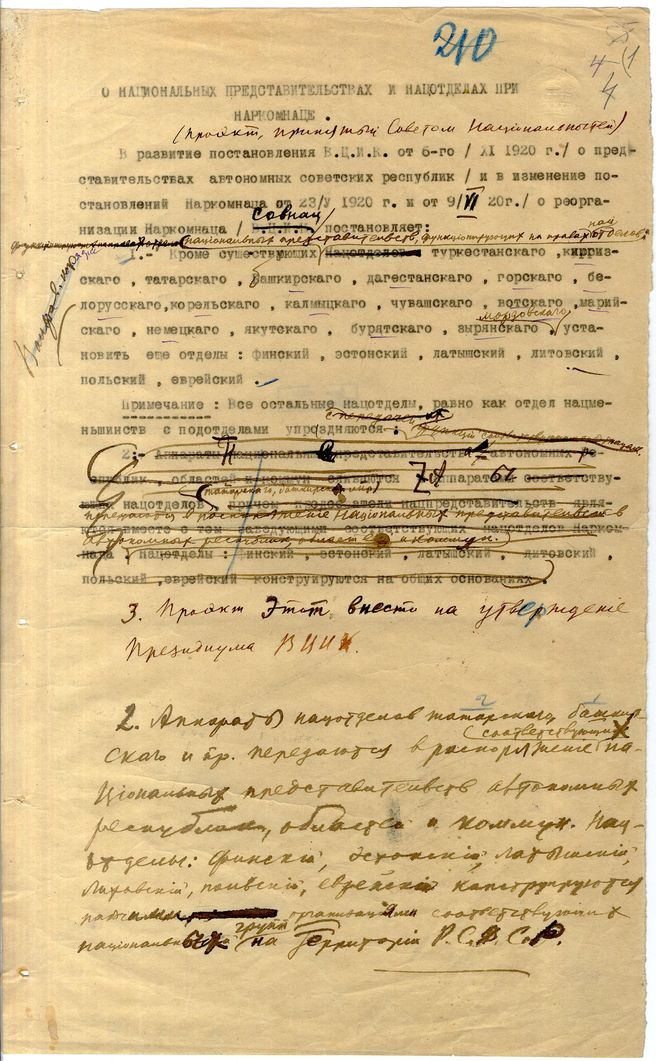 210
4
4
О НАЦИОНАЛЬНЫХ ПРЕДСТАВИТЕЛЬСТВАХ И НАЦОТДЕЛАХ ПРИ
НАРКОМНАЦЕ .
(Проэкт, принятый Советом Национальностей)
В развитие постановления В.Ц.И.К. от 6-го / XI 1920 г./ о пред-
ставительствах автономных советских республик / и в изменение по-
становлений Наркомнаца от 23/У 1920 г. и от 9/VI 20г./ о реорга-
Совнац
низации Наркомнаца / В.Ц.И.К. постановляет:
национальных представительств, функционирующих на правах отделов
1.- Кроме существующих Нацотделов туркестанскаго ,киргиз-
скаго , татарскаго , башкирскаго , дагестанскаго , горскаго , бе-
лорусскаго,корельскаго , калмыцкаго , чувашскаго , вотскаго ,марий-
мордовскаго
скаго , немецкаго , якутскаго , бурятскаго , зырянскаго , уста-
новить еще отделы : финский , эстонский , латышский , литовский ,
польский , еврейский .
Примечание : Все остальные нацотделы, равно как отдел нацмень-
шинств с подотделами упраздняются
2.- Аппараты национальных представительств автономных рес-
публик , областей и коммун сливаются с аппаратами соответству-
ющих нацотделов , причем
нацпредставительств явля-
ются вместе с тем заведующими соответствующих нацотделов Нарком-
автономных республик областей и коммун.
наца , нацотделы: финский , эстонский , латышский , литовский ,
польский ,еврейский конструируются на общих основаниях .
3. Проэкт этот внести на утверждение
Президиума ВЦИК.
2. Аппараты нацотделов татарского, башкир-
соответствующих
ского и пр. передаются в распоряжение на-
циональных представительств автономных
республик, областей и коммун. Нац-
отделы: Финский, Эстонский, Латышский,
Литовский, польский, Еврейский конструируются
организациями соответствующих
национальных групп на Территории Р.С.Ф.С.Р.